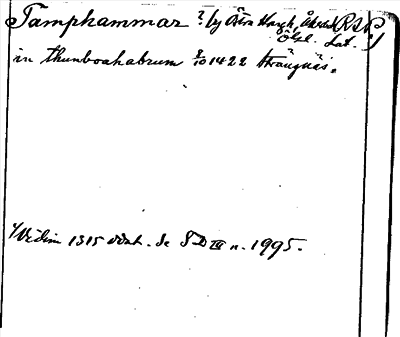 Tamphammar ? by Övra Harg h, Åkerbo RAP
Ögl. Lat.
in thunboahabrum 8/10 1422 Strängnäs.
1/ Vidim 1315 odat. Se SD III n. 1995.